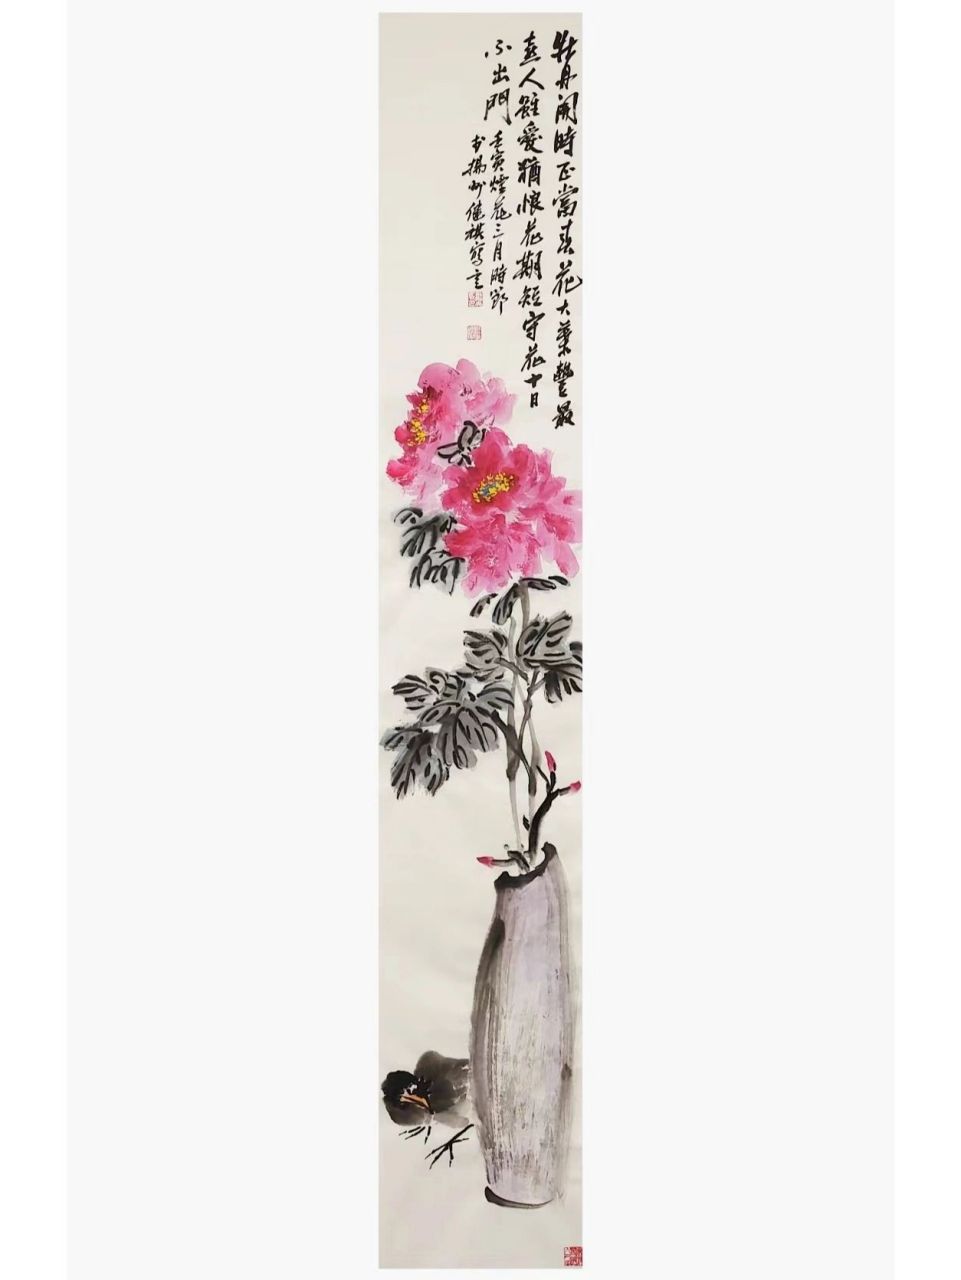 牡丹開時正當春花大葉豐最
喜人雖愛猶恨花期短守花十日
不出門
壬寅煙花三月時節
於揚州健祺寫意